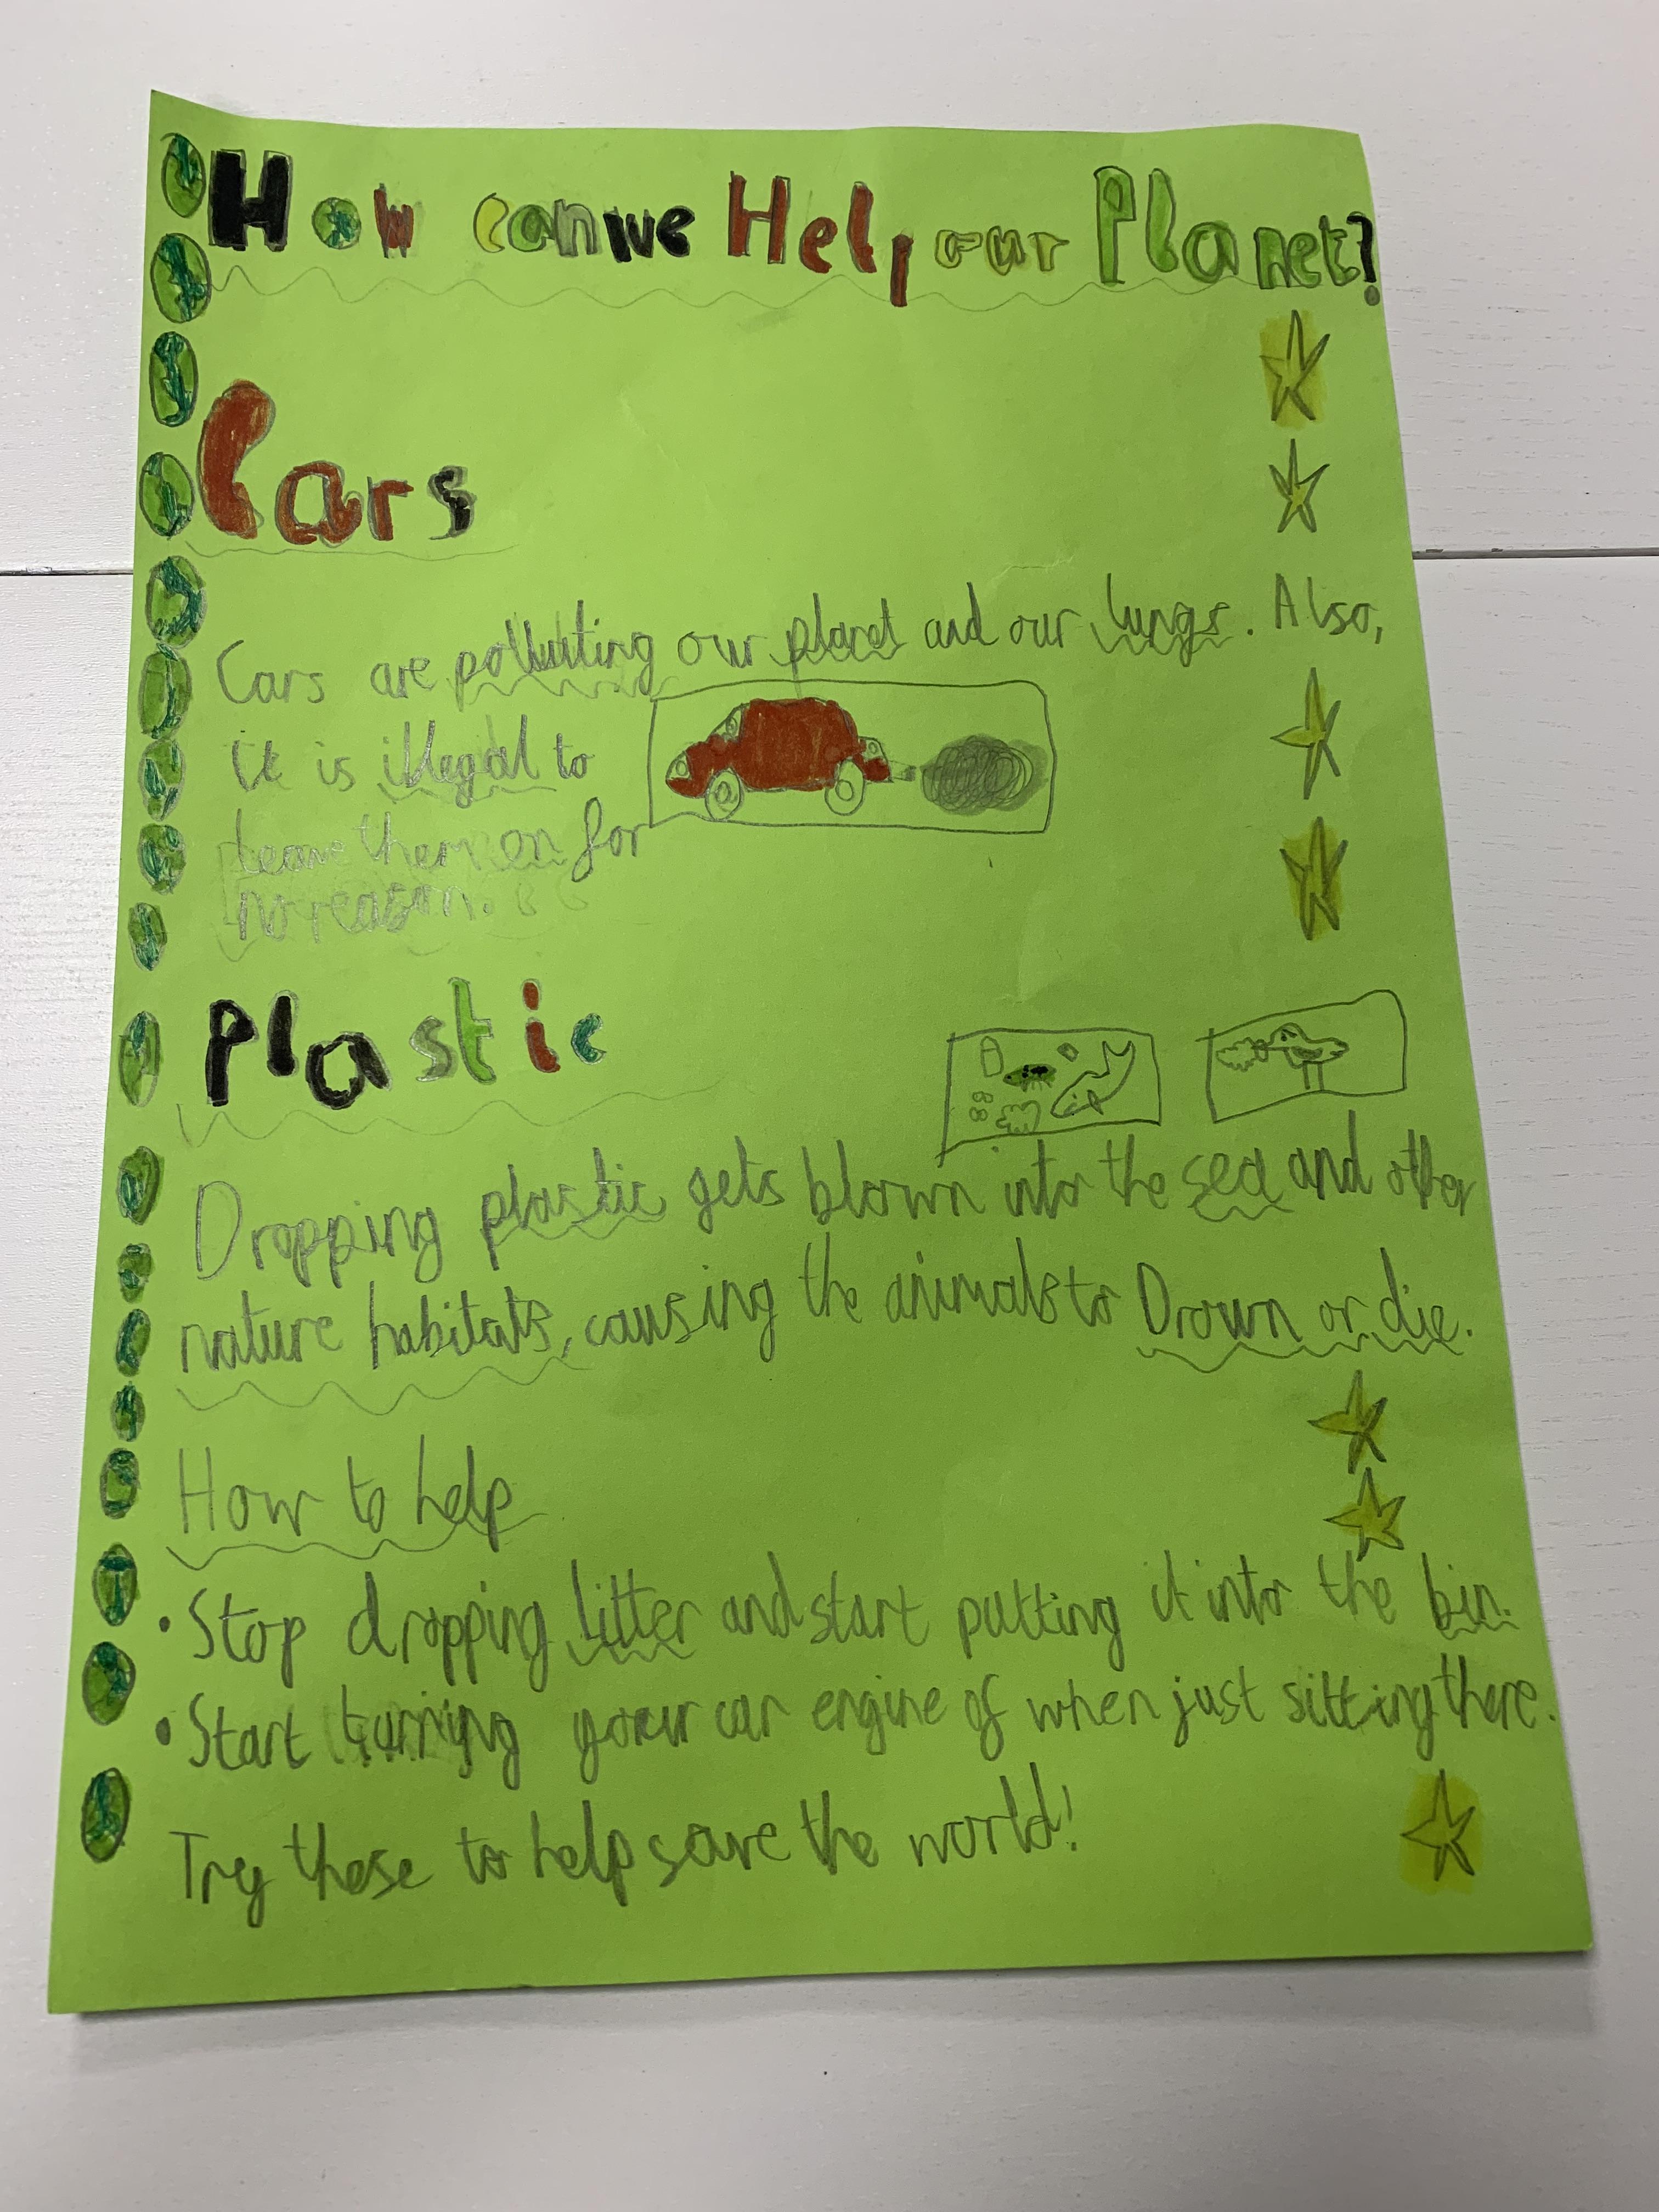 How can we Help our Planet?
Cars
Cars are polluting our planet and our lungs. Also,
it is illegal to
leave them on for
no reason.
Plastic
Dropping plastic gets blown into the sea and other
nature habitats, causing the animals to Drown or die.
How to help
• Stop dropping litter and start putting it into the bin.
• Start turning your car engine of when just sitting there.
Try these to help save the world!